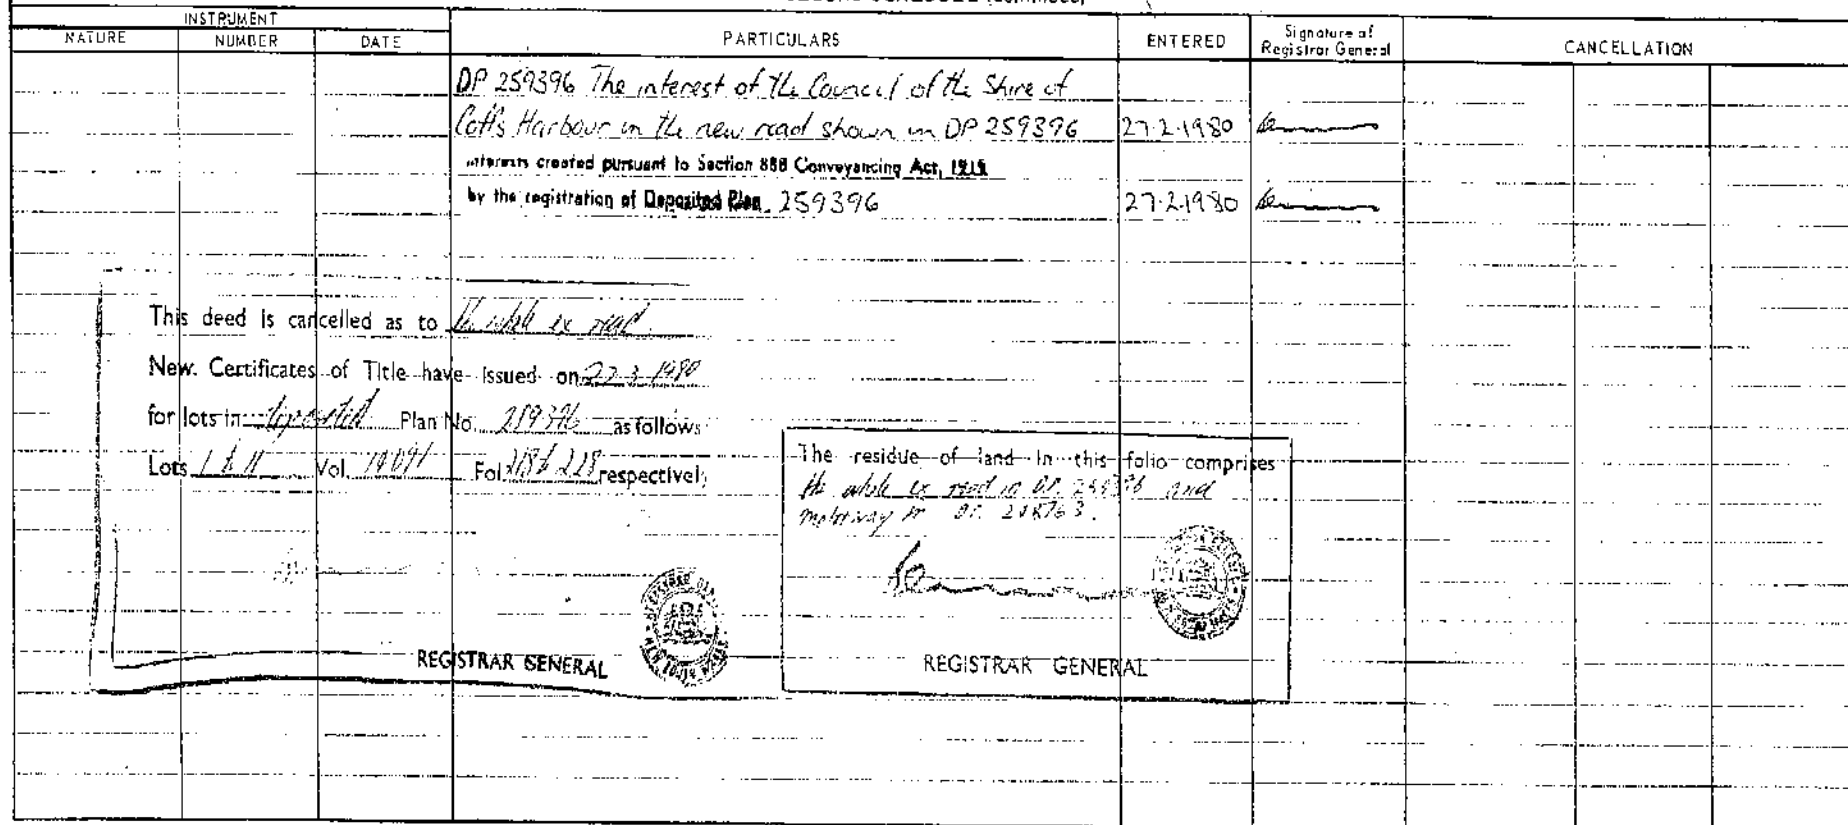 SECOND SCHEDULE (continued)
INSTRUMENT
NATURE NUMBER DATE PARTICULARS ENTERED Signature of Registrar General CANCELLATION
DP 259396 The interest of the Council of the Shire of
Coffs Harbour in the new road shown in DP 259396 27.2.1980
interests created pursuant to Section 88B Conveyancing Act, 1919
by the registration of Deposited Plan 259396 27.2.1980
This deed is cancelled as to the whole ex road
New Certificates of Title have issued on 27.3.1980
for lots in deposited Plan No. 259396 as follows
Lots 1 to 11 Vol. 14091 Fol. 218 to 228 respectively
The residue of land in this folio comprises
the whole ex road in DP. 259396 and
motorway in DP.
REGISTRAR GENERAL
REGISTRAR GENERAL